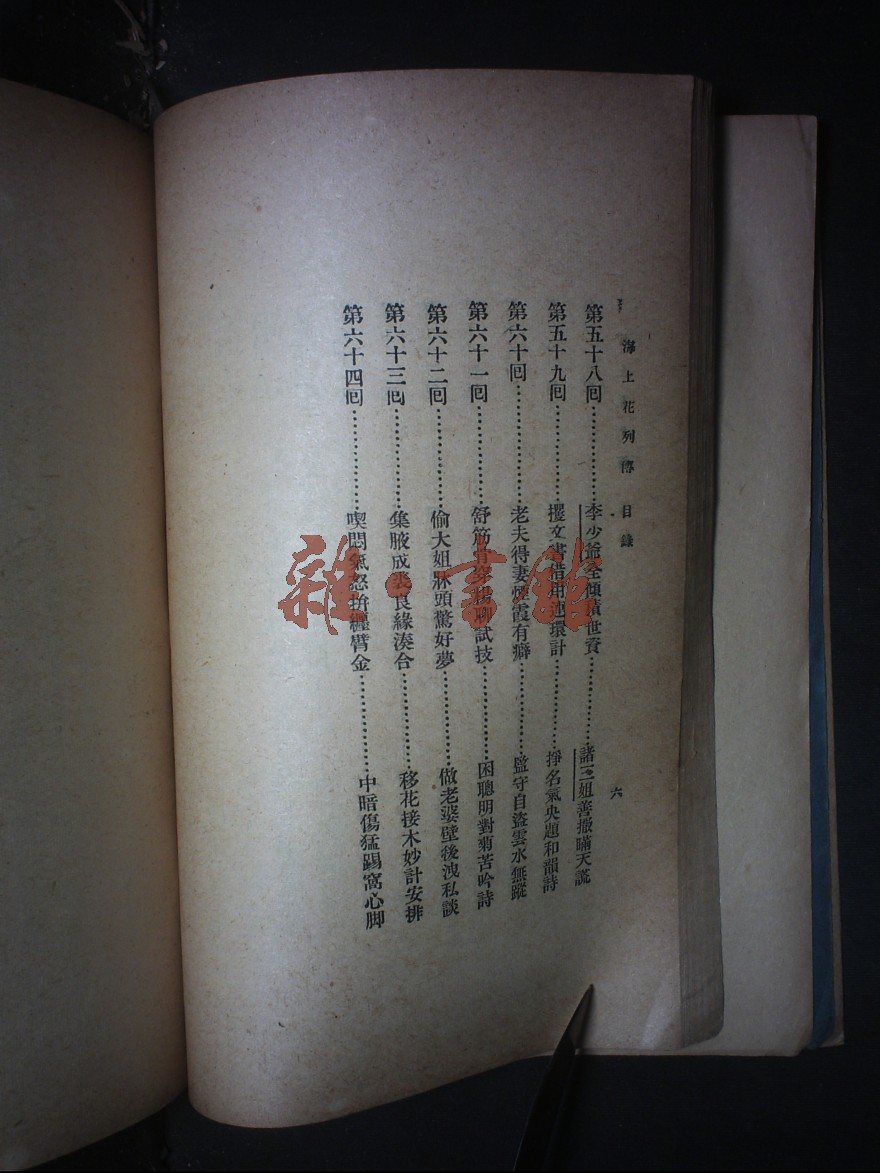 海上花列傳 目錄 六
第五十八回………………李少爺全傾積世資………………諸三姐善撒瞞天謊
第五十九回………………攫文書借用連環計………………掙名氣央題和韻詩
第六十回………………老夫得妻煙霞有癖………………監守自盜雲水無蹤
第六十一回………………舒筋骨穿楊聊試技………………困聰明對菊苦吟詩
第六十二回………………偷大姐牀頭驚好夢………………做老婆壁後洩私談
第六十三回………………集腋成裘良緣湊合………………移花接木妙計安排
第六十四回………………喫悶氣怒拚纏臂金………………中暗傷猛踢窩心脚
雜·書館